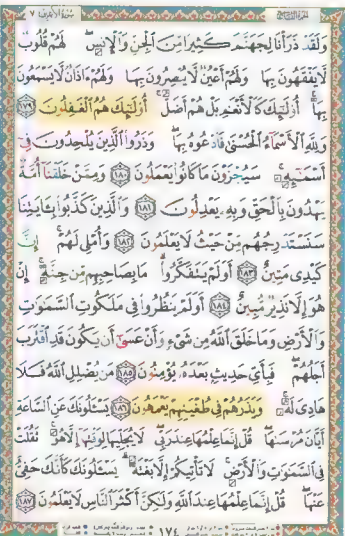 سورة الأعراف ٧
وَلَقَدْ ذَرَأْنَا لِجَهَنَّمَ كَثِيرًا مِّنَ الْجِنِّ وَالْإِنسِ ۖ لَهُمْ قُلُوبٌ
لَّا يَفْقَهُونَ بِهَا وَلَهُمْ أَعْيُنٌ لَّا يُبْصِرُونَ بِهَا وَلَهُمْ ءَاذَانٌ لَّا يَسْمَعُونَ
بِهَا ۚ أُو۟لَٰٓئِكَ كَالْأَنْعَٰمِ بَلْ هُمْ أَضَلُّ ۚ أُو۟لَٰٓئِكَ هُمُ الْغَٰفِلُونَ ١٧٩
وَلِلَّهِ الْأَسْمَآءُ الْحُسْنَىٰ فَادْعُوهُ بِهَا ۖ وَذَرُوا۟ الَّذِينَ يُلْحِدُونَ فِىٓ
أَسْمَٰٓئِهِۦ ۚ سَيُجْزَوْنَ مَا كَانُوا۟ يَعْمَلُونَ ١٨٠ وَمِمَّنْ خَلَقْنَآ أُمَّةٌ
يَهْدُونَ بِالْحَقِّ وَبِهِۦ يَعْدِلُونَ ١٨١ وَالَّذِينَ كَذَّبُوا۟ بِـَٔايَٰتِنَا
سَنَسْتَدْرِجُهُم مِّنْ حَيْثُ لَا يَعْلَمُونَ ١٨٢ وَأُمْلِى لَهُمْ ۚ إِنَّ
كَيْدِى مَتِينٌ ١٨٣ أَوَلَمْ يَتَفَكَّرُوا۟ ۗ مَا بِصَاحِبِهِم مِّن جِنَّةٍ ۚ إِنْ
هُوَ إِلَّا نَذِيرٌ مُّبِينٌ ١٨٤ أَوَلَمْ يَنظُرُوا۟ فِى مَلَكُوتِ السَّمَٰوَٰتِ
وَالْأَرْضِ وَمَا خَلَقَ اللَّهُ مِن شَىْءٍ وَأَنْ عَسَىٰٓ أَن يَكُونَ قَدِ اقْتَرَبَ
أَجَلُهُمْ ۖ فَبِأَىِّ حَدِيثٍۭ بَعْدَهُۥ يُؤْمِنُونَ ١٨٥ مَن يُضْلِلِ اللَّهُ فَلَا
هَادِىَ لَهُۥ ۚ وَيَذَرُهُمْ فِى طُغْيَٰنِهِمْ يَعْمَهُونَ ١٨٦ يَسْـَٔلُونَكَ عَنِ السَّاعَةِ
أَيَّانَ مُرْسَىٰهَا ۖ قُلْ إِنَّمَا عِلْمُهَا عِندَ رَبِّى ۖ لَا يُجَلِّيهَا لِوَقْتِهَآ إِلَّا هُوَ ۚ ثَقُلَتْ
فِى السَّمَٰوَٰتِ وَالْأَرْضِ ۚ لَا تَأْتِيكُمْ إِلَّا بَغْتَةً ۗ يَسْـَٔلُونَكَ كَأَنَّكَ حَفِىٌّ
عَنْهَا ۖ قُلْ إِنَّمَا عِلْمُهَا عِندَ اللَّهِ وَلَٰكِنَّ أَكْثَرَ النَّاسِ لَا يَعْلَمُونَ ١٨٧
١٧٤